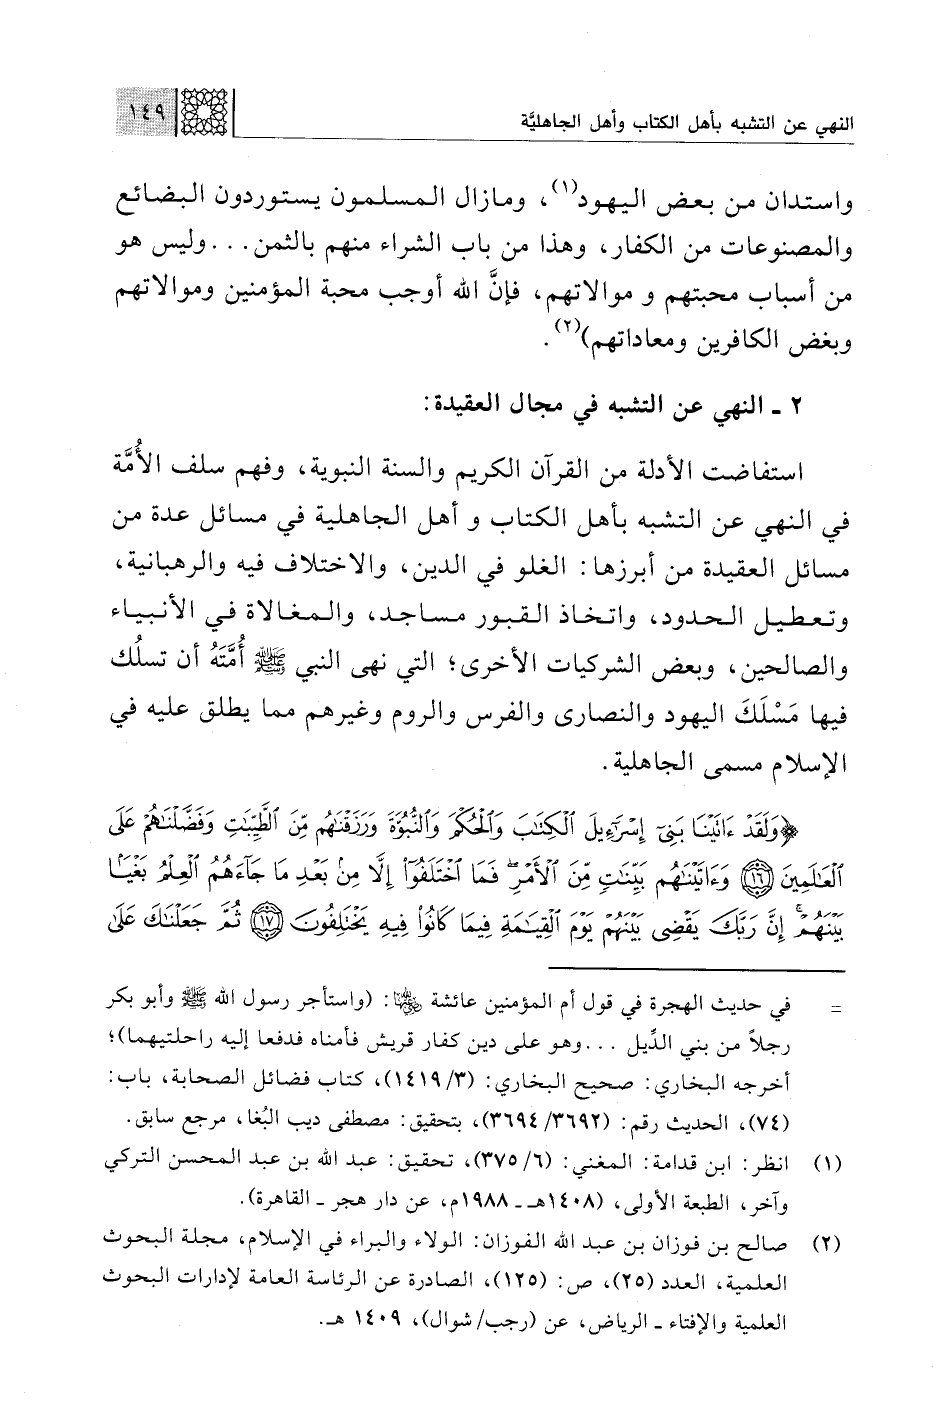 النهي عن التشبه بأهل الكتاب وأهل الجاهليَّة
١٤٩
واستدان من بعض اليهود(١)، ومازال المسلمون يستوردون البضائع
والمصنوعات من الكفار، وهذا من باب الشراء منهم بالثمن... وليس هو
من أسباب محبتهم و موالاتهم، فإنَّ الله أوجب محبة المؤمنين وموالاتهم
وبغض الكافرين ومعاداتهم)(٢).
٢ ـ النهي عن التشبه في مجال العقيدة:
استفاضت الأدلة من القرآن الكريم والسنة النبوية، وفهم سلف الأُمَّة
في النهي عن التشبه بأهل الكتاب و أهل الجاهلية في مسائل عدة من
مسائل العقيدة من أبرزها: الغلو في الدين، والاختلاف فيه والرهبانية،
وتعطيل الحدود، واتخاذ القبور مساجد، والمغالاة في الأنبياء
والصالحين، وبعض الشركيات الأخرى؛ التي نهى النبي ﷺ أُمَّتَهُ أن تسلُك
فيها مَسْلَكَ اليهود والنصارى والفرس والروم وغيرهم مما يطلق عليه في
الإسلام مسمى الجاهلية.
﴿وَلَقَدْ ءَاتَيْنَا بَنِيٓ إِسْرَٰٓءِيلَ ٱلْكِتَٰبَ وَٱلْحُكْمَ وَٱلنُّبُوَّةَ وَرَزَقْنَٰهُم مِّنَ ٱلطَّيِّبَٰتِ وَفَضَّلْنَٰهُمْ عَلَى
ٱلْعَٰلَمِينَ ١٦ وَءَاتَيْنَٰهُم بَيِّنَٰتٍ مِّنَ ٱلْأَمْرِ ۖ فَمَا ٱخْتَلَفُوٓا۟ إِلَّا مِنۢ بَعْدِ مَا جَآءَهُمُ ٱلْعِلْمُ بَغْيًۢا
بَيْنَهُمْ ۚ إِنَّ رَبَّكَ يَقْضِى بَيْنَهُمْ يَوْمَ ٱلْقِيَٰمَةِ فِيمَا كَانُوا۟ فِيهِ يَخْتَلِفُونَ ١٧ ثُمَّ جَعَلْنَٰكَ عَلَىٰ
= في حديث الهجرة في قول أم المؤمنين عائشة رضي الله عنها: (واستأجر رسول الله ﷺ وأبو بكر
رجلاً من بني الدِّيل ... وهو على دين كفار قريش فأمناه فدفعا إليه راحلتيهما)؛
أخرجه البخاري: صحيح البخاري: (١٤١٩/٣)، كتاب فضائل الصحابة، باب:
(٧٤)، الحديث رقم: (٣٦٩٤/٣٦٩٢)، بتحقيق: مصطفى ديب البُغا، مرجع سابق.
(١) انظر: ابن قدامة: المغني: (٣٧٥/٦)، تحقيق: عبد الله بن عبد المحسن التركي
وآخر، الطبعة الأولى، (١٤٠٨هـ ـ ١٩٨٨م، عن دار هجر ـ القاهرة).
(٢) صالح بن فوزان بن عبد الله الفوزان: الولاء والبراء في الإسلام، مجلة البحوث
العلمية، العدد (٢٥)، ص: (١٢٥)، الصادرة عن الرئاسة العامة لإدارات البحوث
العلمية والإفتاء ـ الرياض، عن (رجب/شوال)، ١٤٠٩ هـ.